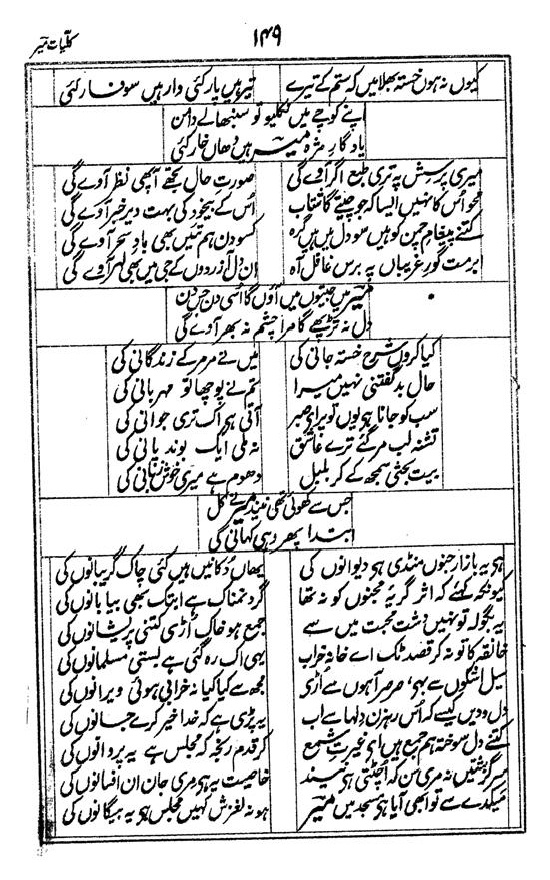 کلیات میر
۱۴۹
کیوں نہ ہوں خستہ بھلا میں کہ ستم کے تیرے
تیر ہیں پار کئی وار ہیں سوفار کئی
اپنے کوچے میں نکلیو تو سنبھالے دامن
یادگار مژہ میر ہیں وھاں خار کئی
میری پرسش پہ تری طبع اگر آوے گی
صورت حال تجھے آپھی نظر آوے گی
محو اس کا نہیں ایسا کہ جو چیتے گا شتاب
اس کے بیخود کی بہت دیر خبر آوے گی
کتنے پیغام چمن کو ہیں سو دل میں ہیں گرہ
کسو دن ہم تئیں بھی باد سحر آوے گی
ابر مت گور غریباں پہ برس غافل آہ
ان دل آزردوں کے جی میں بھی لہر آوے گی
میر میں جیتوں میں آؤں گا اسی دن جس دن
دل نہ تڑپھے گا مرا چشم نہ بھر آوے گی
کیا کروں شرح خستہ جانی کی
میں نے مر مر کے زندگانی کی
حال بد گفتنی نہیں میرا
تم نے پوچھا تو مہربانی کی
سب کو جانا ہی یوں تو پر ای صبر
آتی ہی اک تری جوانی کی
تشنہ لب مر گئے ترے عاشق
نہ ملی ایک بوند پانی کی
بیت بحثی سمجھ کے کر بلبل
دھوم ہے میری خوش زبانی کی
جس سے کھوئی تھی نیند میر نے کل
ابتدا پھر وہی کہانی کی
ہی یہ بازار جنوں منڈی ہی دیوانوں کی
یھاں دکانیں ہیں کئی چاک گریبانوں کی
کیونکہ کہئے کہ اثر گریۂ مجنوں کو نہ تھا
گرد نمناک ہے ابتک بھی بیابانوں کی
یہ بگولہ تو نہیں دشت محبت میں سے
جمع ہو خاک اڑی کتنی پریشانوں کی
خانقہ کا تو نہ کر قصد ٹک اے خانہ خراب
یہی اک رہ گئی ہے بستی مسلمانوں کی
سیل اشکوں سے بہی، صرصر آہوں سے اڑی
مجھ سے کیا کیا نہ خرابی ہوئی ویرانوں کی
دل و دیں کیسے کہ اس رہزن دلہا سے اب
یہ پڑی ہے کہ خدا خیر کرے جانوں کی
کتنے دل سوختہ ہم جمع ہیں ای غیرت شمع
کر قدم رنجہ کہ مجلس ہے یہ پروانوں کی
سرگزشتیں نہ مری سن کہ اچٹتی ہی نیند
خاصیت یہ ہی مری جان ان افسانوں کی
میکدے سے تو ابھی آیا ہی مسجد میں میر
ہو نہ لغزش کہیں مجلس ہی یہ بیگانوں کی